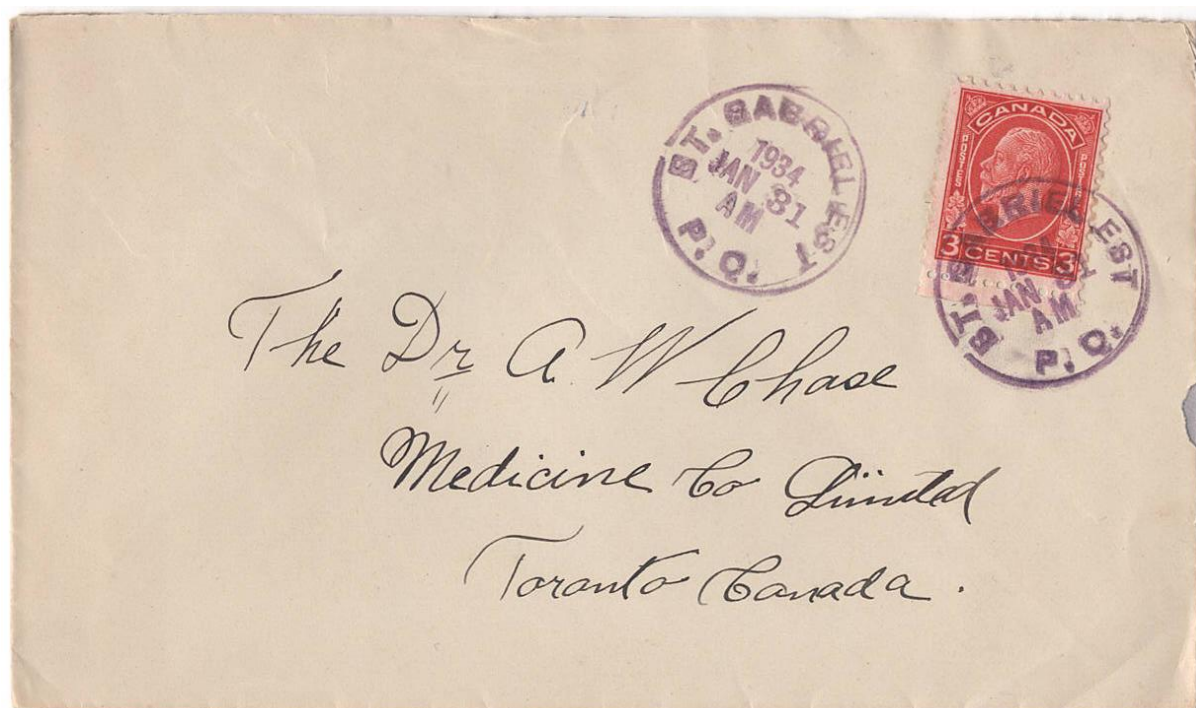 ST. GABRIEL EST
1934
JAN 31
AM
P.Q.
CANADA
POSTES
POSTES
3 CENTS 3
ST. GABRIEL EST
JAN 31
AM
P.Q.
The Dr A. W Chase
Medicine Co Limited
Toronto Canada.